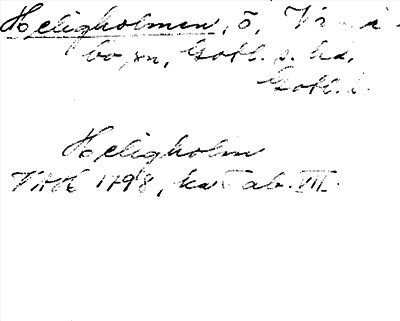 Heligholmen, ö, V
sn, Gotl. s. hd.
Gotl. l.
Heligholm
1798, kart ab. VII.